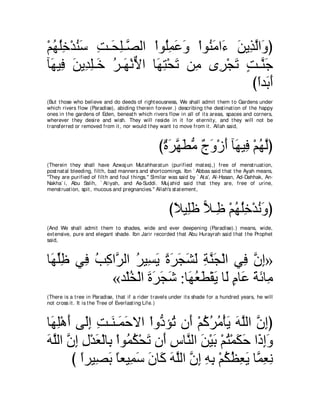 (وَالَّذِينَ ءَامَنُواْ وَعَمِلُواْ الصَّـلِحَـتِ سَنُدْخِلُهُمْ
جَنَّـتٍ تَجْرِى مِن تَحْتِهَا الاٌّنْهَـرُ خَـلِدِينَ فِيهَآ
أَبَداً)
(But those who believe and do deeds of righteousness, We shall admit them to Gardens under
which rivers flow (Paradise), abiding therein forever.) describing the destination of the happy
ones in the gardens of Eden, beneath which rivers flow in all of its areas, spaces and corners,
wherever they desire and wish. They will reside in it for eternity, and they will not be
transferred or removed from it, nor would they want to move from it. Allah said,
(لَّهُمْ فِيهَآ أَزْوَجٌ مُّطَهَّرَةٌ)
(Therein they shall have Azwajun Mutahharatun (purified mates),) free of menstruation,
postnatal bleeding, filth, bad manners and shortcomings. Ibn `Abbas said that the Ayah means,
"They are purified of filth and foul things." Similar was said by `Ata', Al-Hasan, Ad-Dahhak, An-
Nakha`i, Abu Salih, `Atiyah, and As-Suddi. Mujahid said that they are, free of urine,
menstruation, spit, mucous and pregnancies." Allah's statement,
(وَنُدْخِلُهُمْ ظِـلاًّ ظَلِيلاً)
(And We shall admit them to shades, wide and ever deepening (Paradise).) means, wide,
extensive, pure and elegant shade. Ibn Jarir recorded that Abu Hurayrah said that the Prophet
said,
«إِنَّ فِي الْجَنَّةِ لَشَجَرَةً يَسِيرُ الرَّاكِبُ فِي ظِلِّهَا
مِائَةَ عَامٍ لَا يَقْطَعُهَا: شَجَرَةَ الْخُلْد»
(There is a tree in Paradise, that if a rider travels under its shade for a hundred years, he will
not cross it. It is the Tree of Everlasting Life.)
(إِنَّ اللَّهَ يَأْمُرُكُمْ أَن تُؤدُّواْ الاحَمَـنَـتِ إِلَى أَهْلِهَا
وَإِذَا حَكَمْتُمْ بَيْنَ النَّاسِ أَن تَحْكُمُواْ بِالْعَدْلِ إِنَّ اللَّهَ
نِعِمَّا يَعِظُكُمْ بِهِ إِنَّ اللَّهَ كَانَ سَمِيعاً بَصِيراً )